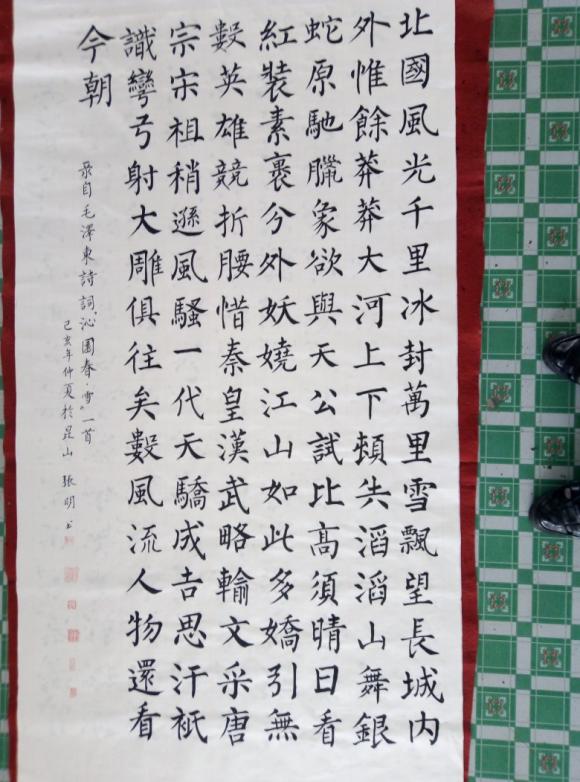 北國風光千里冰封萬里雪飄望長城内
外惟餘莽莽大河上下頓失滔滔山舞銀
蛇原馳臘象欲與天公試比高須晴日看
紅裝素裹兮外妖嬈江山如此多嬌引無
數英雄競折腰惜秦皇漢武略輸文采唐
宗宋祖稍遜風騷一代天驕成吉思汗衹
識彎弓射大雕俱往矣數風流人物還看
今朝
录自毛澤東詩詞《沁園春·雪》一首
己亥年仲夏於昆山 張明书